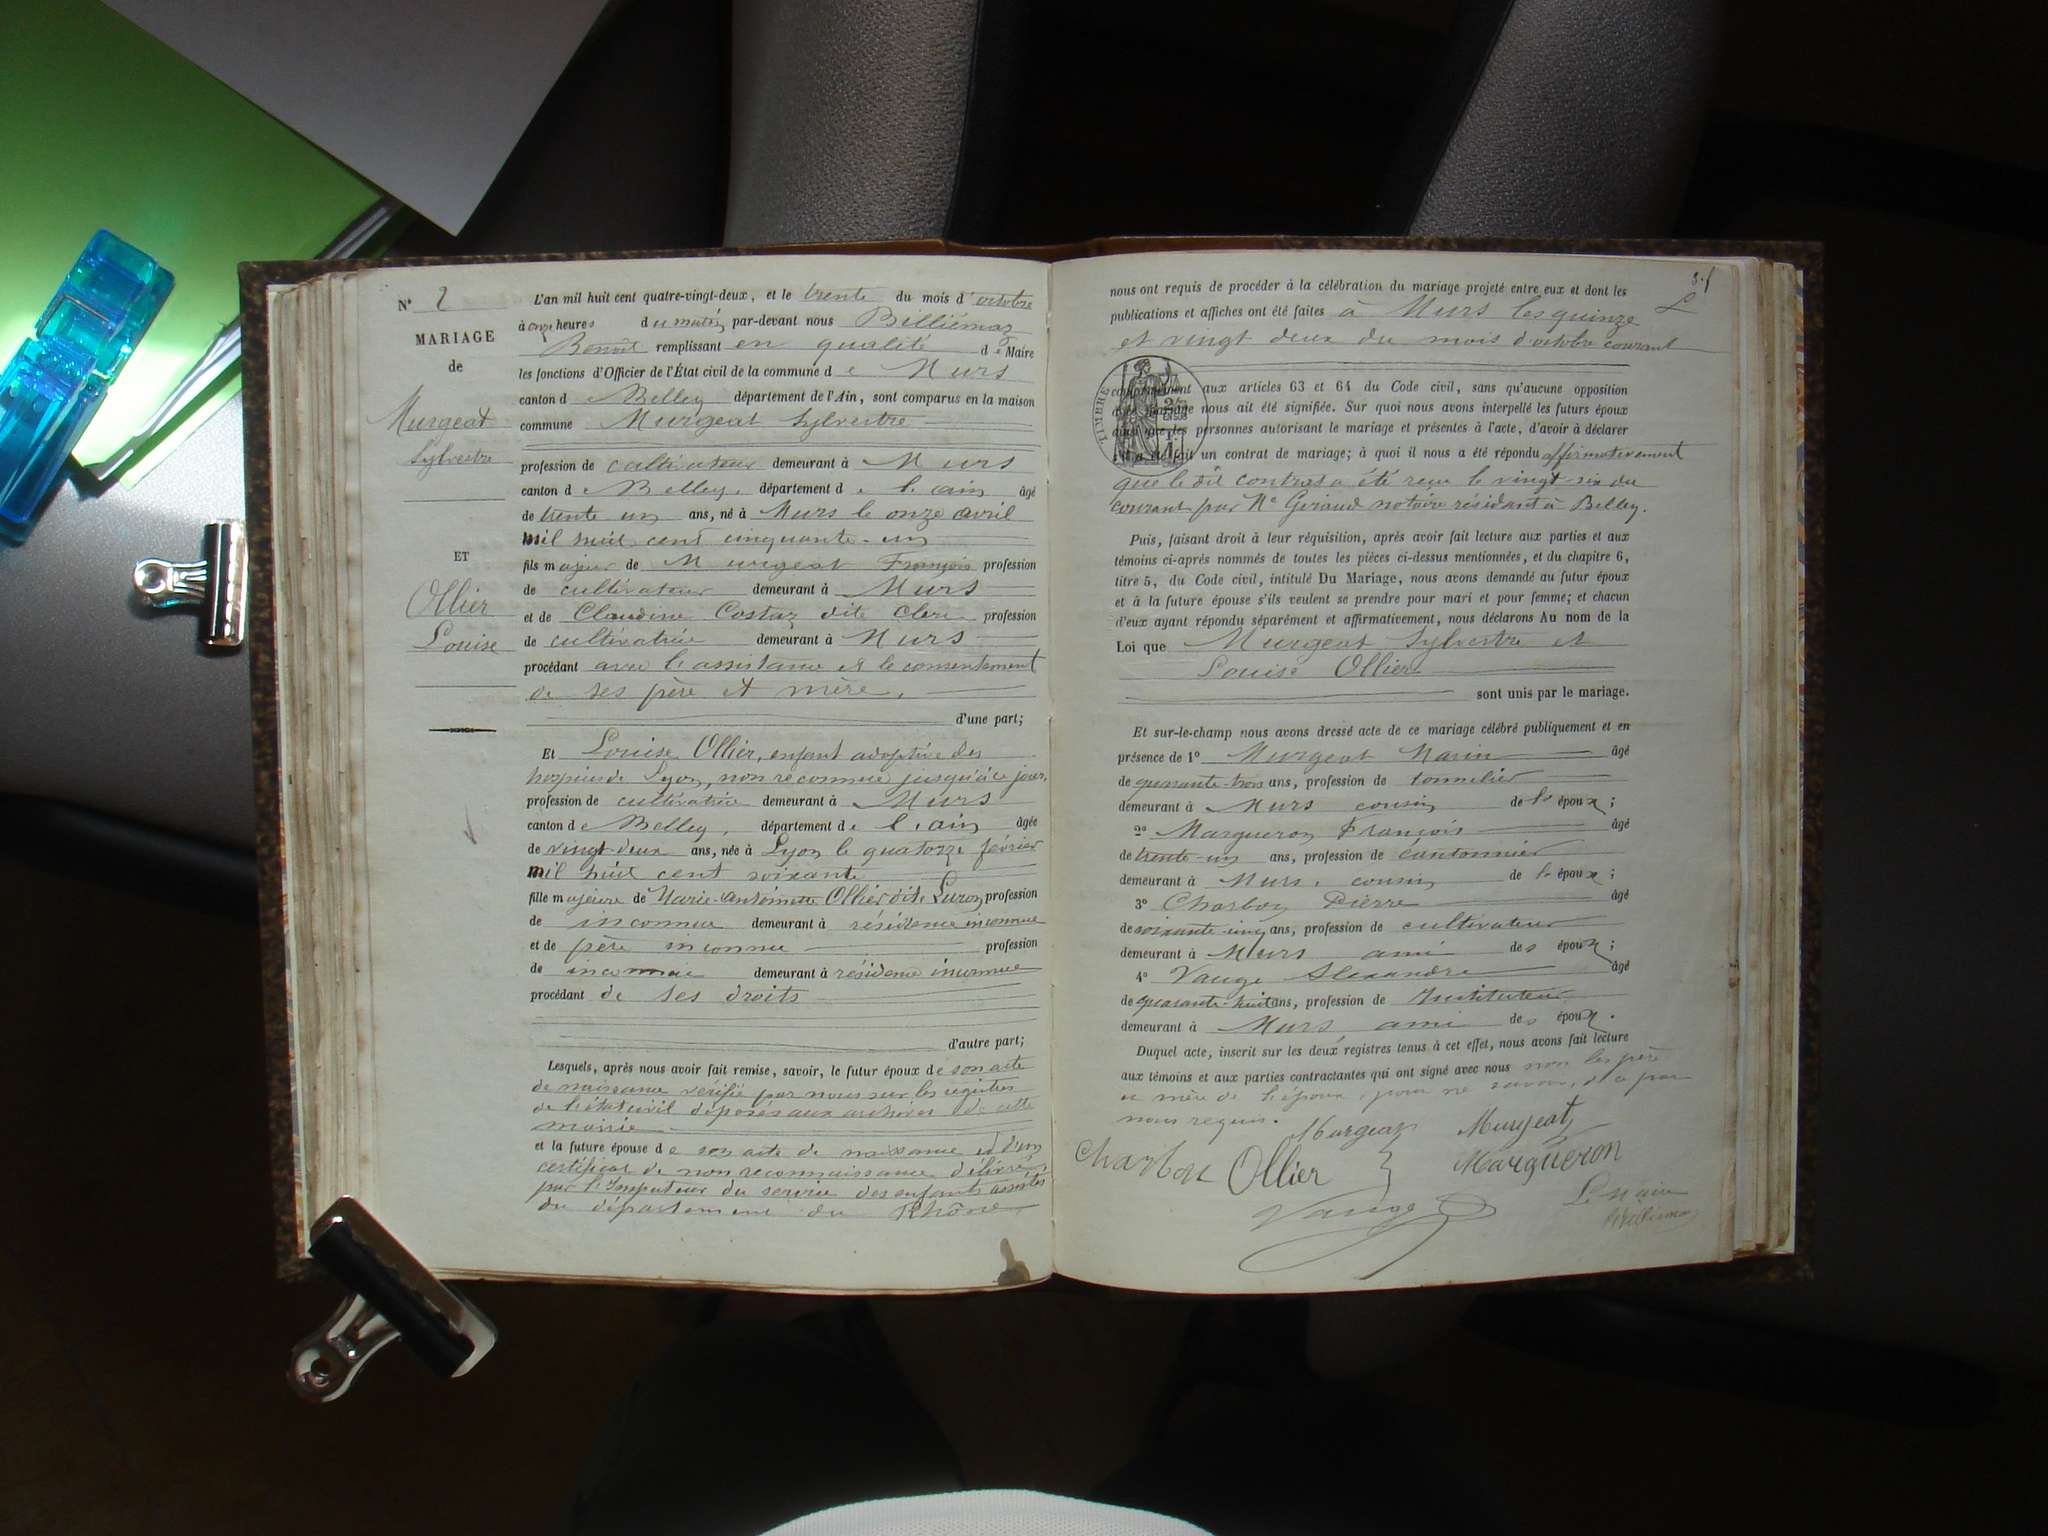 N° 2
MARIAGE
de
Murgeat
Sylvestre
ET
Ollier
Louise
L'an mil huit cent quatre-vingt-deux, et le trente du mois d'octobre
à onze heures du matin, par-devant nous Billiémaz
Benoît remplissant en qualité de Maire
les fonctions d'Officier de l'État civil de la commune de Murs
canton de Belley département de l'Ain, sont comparus en la maison
commune Murgeat Sylvestre
profession de cultivateur demeurant à Murs
canton de Belley, département de l'ain âgé
de trente un ans, né à Murs le onze avril
mil huit cent cinquante-un
fils majeur de Murgeat François profession
de cultivateur demeurant à Murs
et de Claudine Costaz dite Clerc profession
de cultivatrice demeurant à Murs
procédant avec l'assistance et le consentement
de ses père et mère,
d'une part;
Et Louise Ollier, enfant adoptive des
hospices de Lyon, non reconnue jusqu'à ce jour,
profession de cultivatrice demeurant à Murs
canton de Belley, département de l'ain âgée
de vingt-deux ans, née à Lyon le quatorze février
mil huit cent soixante
fille majeure de Marie-Antoinette Ollier dite Luron profession
de inconnue demeurant à résidence inconnue
et de père inconnu profession
de inconnue demeurant à résidence inconnue
procédant de ses droits
d'autre part;
Lesquels, après nous avoir fait remise, savoir, le futur époux de son acte
de naissance vérifié par nous sur les registres
de l'état civil déposés aux archives de cette
mairie
et la future épouse de son acte de naissance et d'un
certificat de non reconnaissance délivré
par l'Inspecteur du service des enfants assistés
du département du Rhône
nous ont requis de procéder à la célébration du mariage projeté entre eux et dont les
publications et affiches ont été faites à Murs les quinze
et vingt deux du mois d'octobre courant
TIMBRE
conformément aux articles 63 et 64 du Code civil, sans qu'aucune opposition
audit mariage nous ait été signifiée. Sur quoi nous avons interpellé les futurs époux
ainsi que les personnes autorisant le mariage et présentes à l'acte, d'avoir à déclarer
s'il a été fait un contrat de mariage; à quoi il nous a été répondu affirmativement
que le dit contrat a été reçu le vingt-six du
courant par Me Giraud notaire résidant à Belley.
Puis, faisant droit à leur réquisition, après avoir fait lecture aux parties et aux
témoins ci-après nommés de toutes les pièces ci-dessus mentionnées, et du chapitre 6,
titre 5, du Code civil, intitulé Du Mariage, nous avons demandé au futur époux
et à la future épouse s'ils veulent se prendre pour mari et pour femme; et chacun
d'eux ayant répondu séparément et affirmativement, nous déclarons Au nom de la
Loi que Murgeat Sylvestre et
Louise Ollier
sont unis par le mariage.
Et sur-le-champ nous avons dressé acte de ce mariage célébré publiquement et en
présence de 1° Murgeat Marin âgé
de quarante-trois ans, profession de tonnelier
demeurant à Murs cousin de l'époux;
2° Margueron François âgé
de trente-un ans, profession de cantonnier
demeurant à Murs, cousin de l'époux;
3° Charbon Pierre âgé
de soixante-cinq ans, profession de cultivateur
demeurant à Murs ami des époux;
4° Vauge Alexandre âgé
de quarante-huit ans, profession de Instituteur
demeurant à Murs ami des époux.
Duquel acte, inscrit sur les deux registres tenus à cet effet, nous avons fait lecture
aux témoins et aux parties contractantes qui ont signé avec nous non les père
et mère de l'époux, pour ne savoir, de ce par
nous requis. Murgeat Murgeat
Charbon Ollier Margueron
Vauge Le Maire
Billiémaz